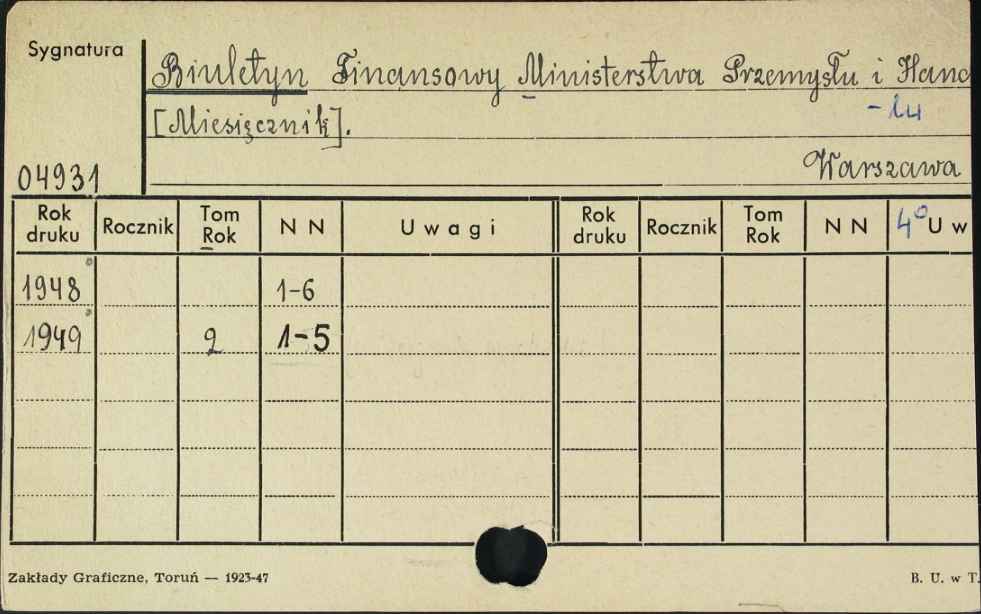 Sygnatura
Biuletyn Finansowy Ministerstwa Przemysłu i Hand
- lu
[Miesięcznik].
Warszawa
04931
Rok druku Rocznik Tom Rok N N Uwagi Rok druku Rocznik Tom Rok N N 4° Uw
1948 1-6
1949 2 1-5
Zakłady Graficzne, Toruń — 1923-47
B. U. w T.